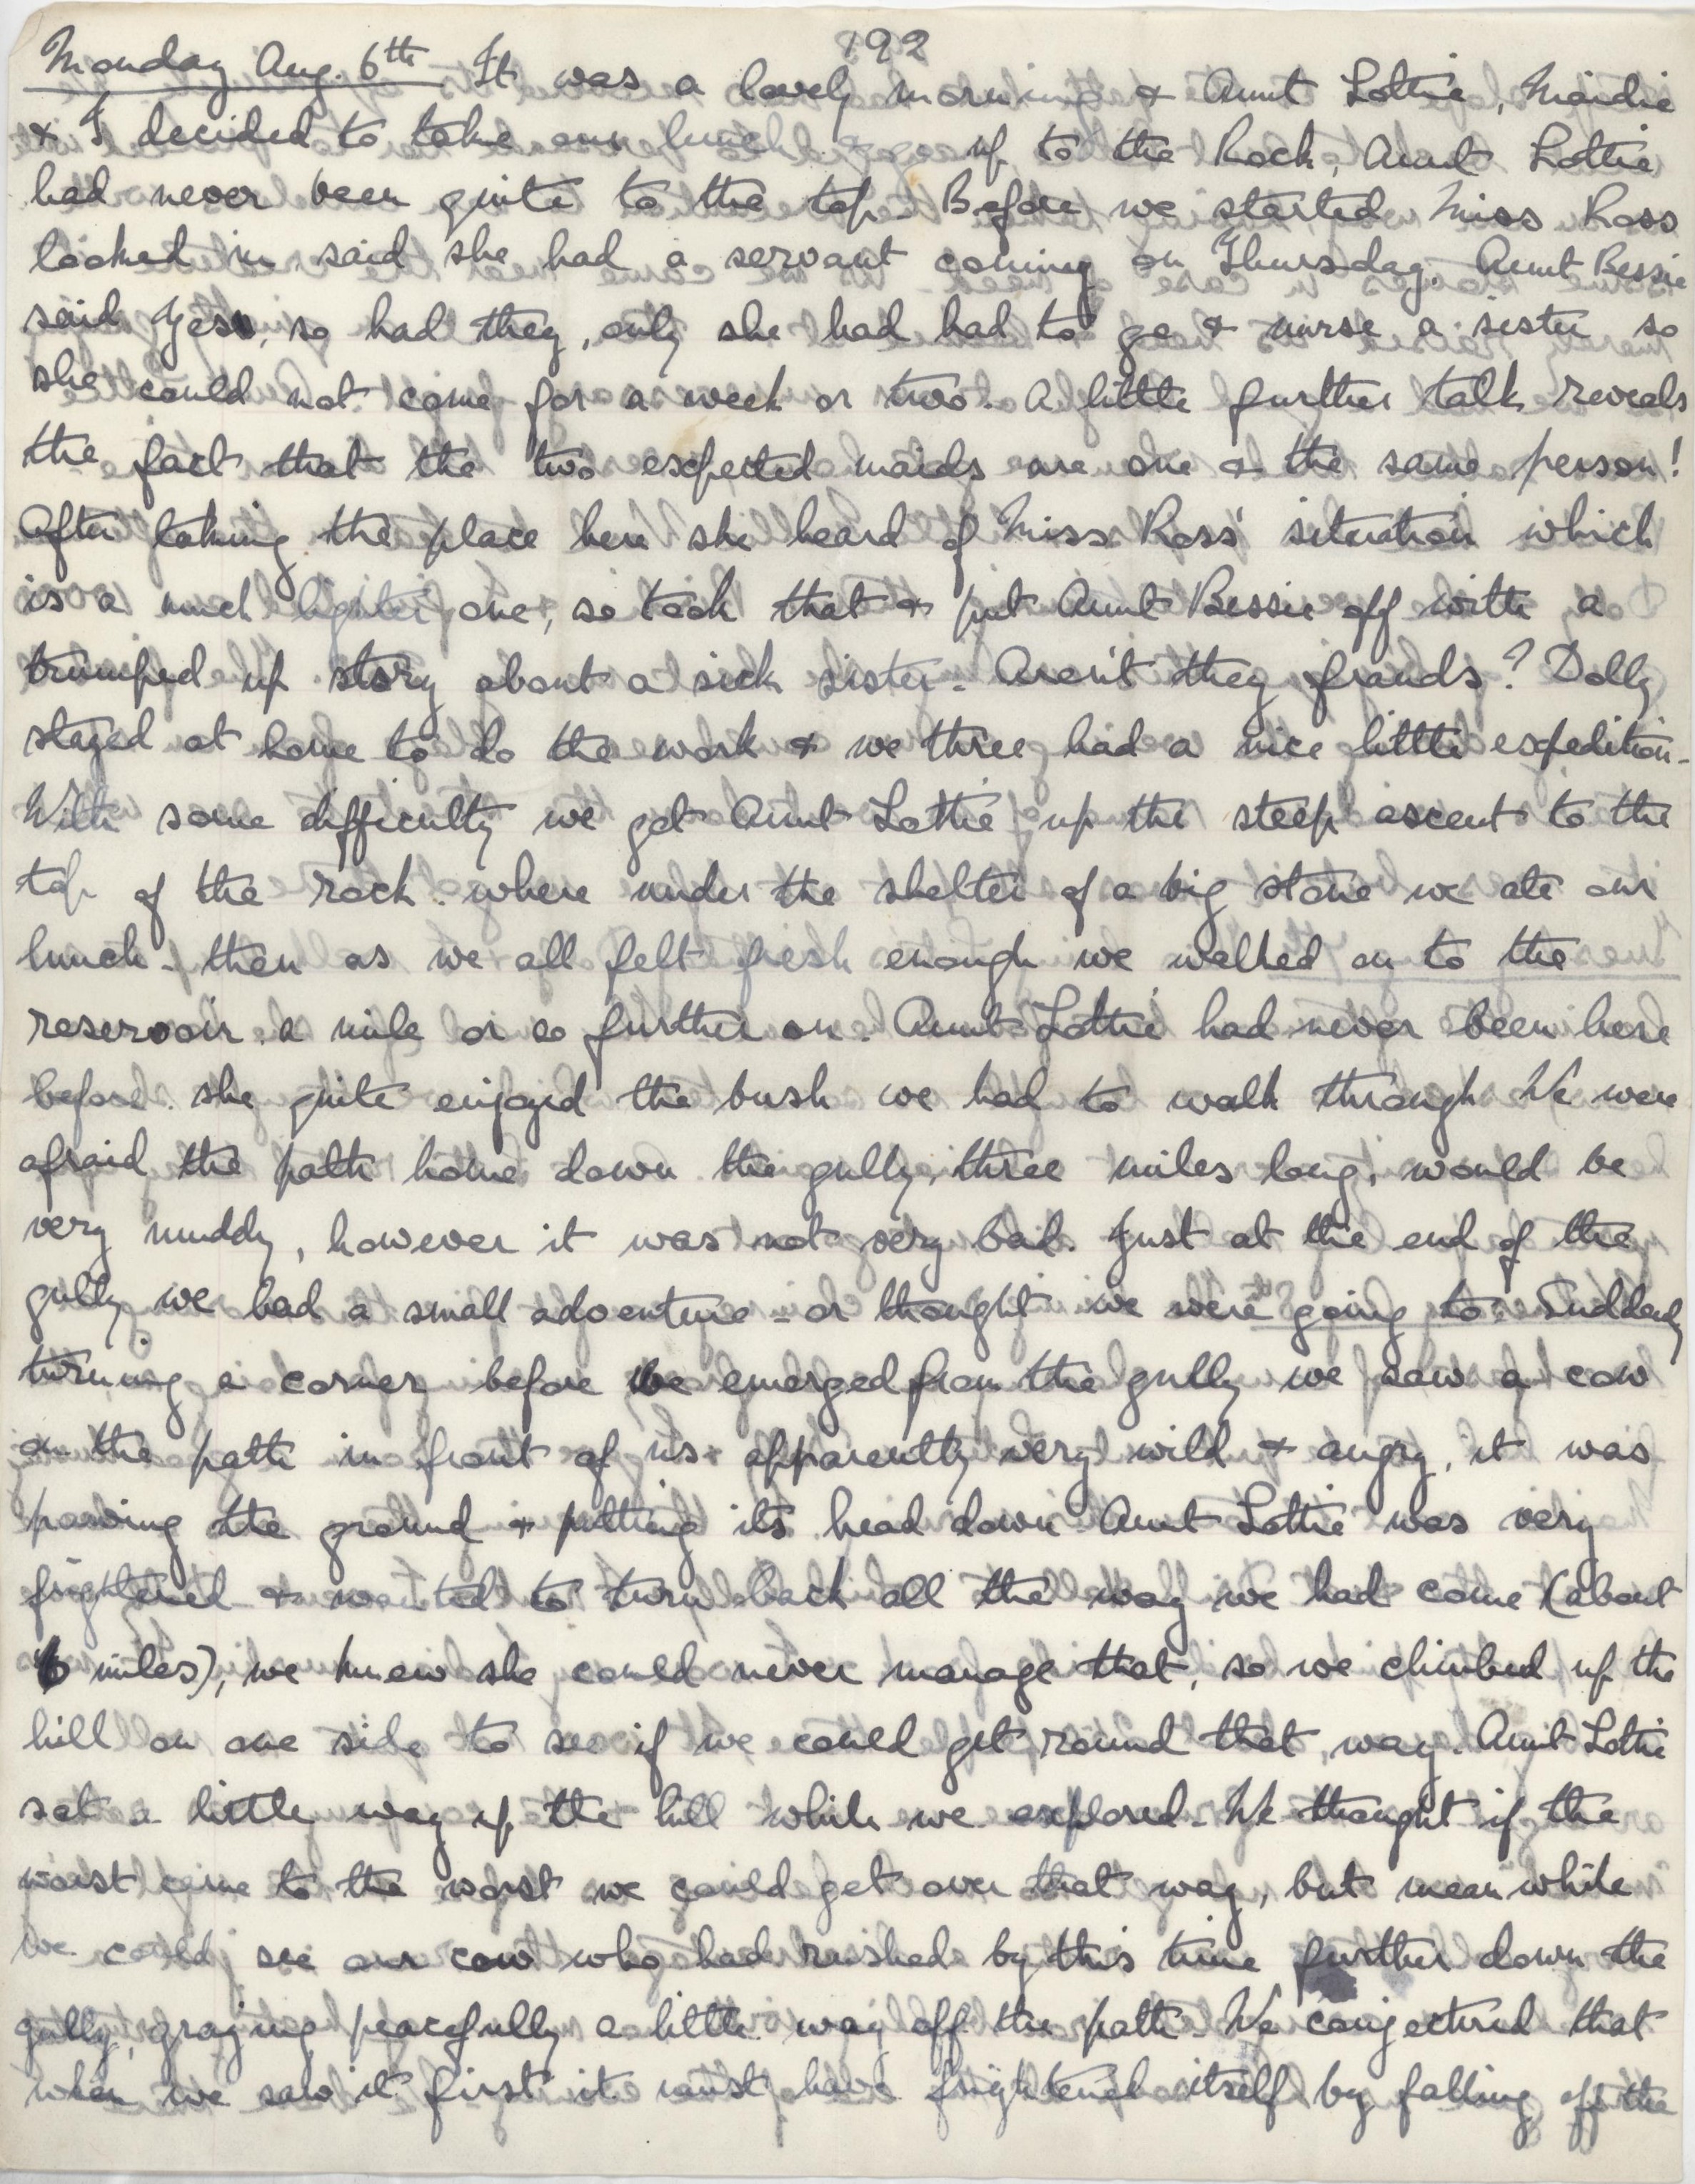 192
Monday Aug. 6th It was a lovely morning & Aunt Lottie, Maidie
& I decided to take our lunch up to the Rock, Aunt Lottie
had never been quite to the top. Before we started Miss Ross
looked in, said she had a servant coming on Thursday. Aunt Bessie
said yes, so had they, only she had had to go & nurse a sister so
she could not come for a week or two. A little further talk reveals
the fact that the two expected maids are one & the same person!
After taking the place here she heard of Miss Ross' situation which
is a much lighter one, so took that & put Aunt Bessie off with a
trumped up story about a sick sister. Aren't they frauds? Dolly
stayed at home to do the work & we three had a nice little expedition.
With some difficulty we got Aunt Lottie up the steep ascent to the
top of the rock. where under the shelter of a big stone we ate our
lunch. then as we all felt fresh enough we walked on to the
reservoir. a mile or so further on. Aunt Lottie had never been here
before. she quite enjoyed the bush we had to walk through We were
afraid the path home down the gully, three miles long, would be
very muddy, however it was not very bad. Just at the end of the
gully we had a small adventure - or thought we were going to. Suddenly
turning a corner before we emerged from the gully we saw a cow
on the path in front of us apparently very wild & angry, it was
pawing the ground & putting its head down Aunt Lottie was very
frightened & wanted to turn back all the way we had come (about
6 miles), we knew she could never manage that, so we climbed up the
hill on one side to see if we could get round that way. Aunt Lottie
sat a little way up the hill while we explored. We thought if the
worst came to the worst we could get over that way, but meanwhile
we could see our cow who had rushed by this time further down the
gully, grazing peacefully a little way off the path. We conjectured that
when we saw it first it must have frightened itself by falling off the